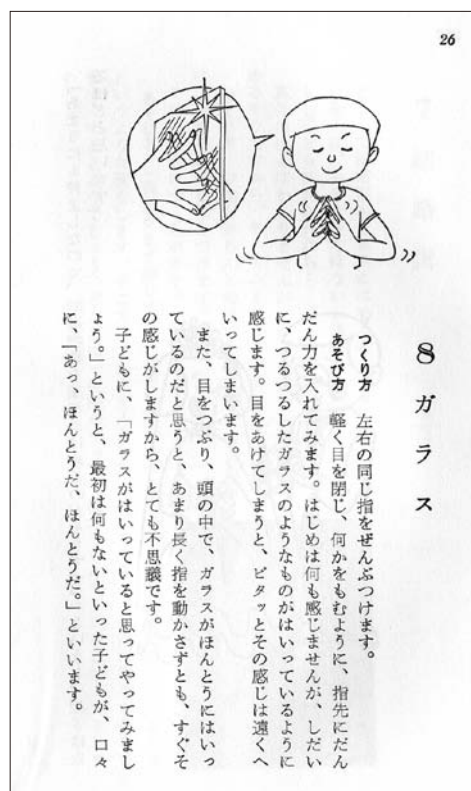 26
8 ガラス
つくり方　左右の同じ指をぜんぶつけます。
あそび方　軽く目を閉じ、何かをもむように、指先にだん
だん力を入れてみます。はじめは何も感じませんが、しだい
に、つるつるしたガラスのようなものがはいっているように
感じます。目をあけてしまうと、ピタッとその感じは遠くへ
いってしまいます。
また、目をつぶり、頭の中で、ガラスがほんとうにはいっ
ているのだと思うと、あまり長く指を動かさずとも、すぐそ
の感じがしますから、とても不思議です。
子どもに、「ガラスがはいっていると思ってやってみまし
ょう。」というと、最初は何もないといった子どもが、口々
に、「あっ、ほんとうだ、ほんとうだ。」といいます。